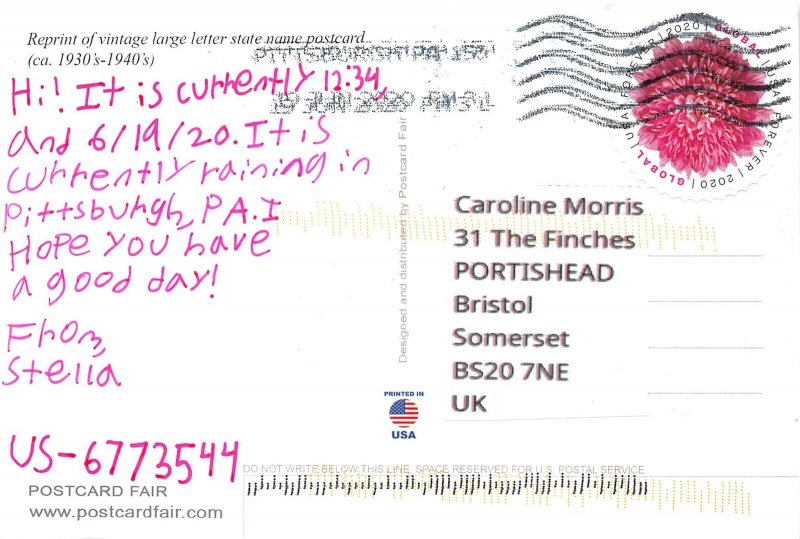 Reprint of vintage large letter state name postcard
(ca. 1930's-1940's)
Hi! It is currently 12:34,
and 6/19/20. It is
currently raining in
Pittsburgh, PA. I
Hope you have
a good day!
From,
Stella
US-6773544
POSTCARD FAIR
www.postcardfair.com
Designed and distributed by Postcard Fair
GLOBAL | USA | FOREVER | 2020 | GLOBAL | USA | FOREVER | 2020 |
Caroline Morris
31 The Finches
PORTISHEAD
Bristol
Somerset
BS20 7NE
UK
PRINTED IN
USA
DO NOT WRITE BELOW THIS LINE. SPACE RESERVED FOR U.S. POSTAL SERVICE